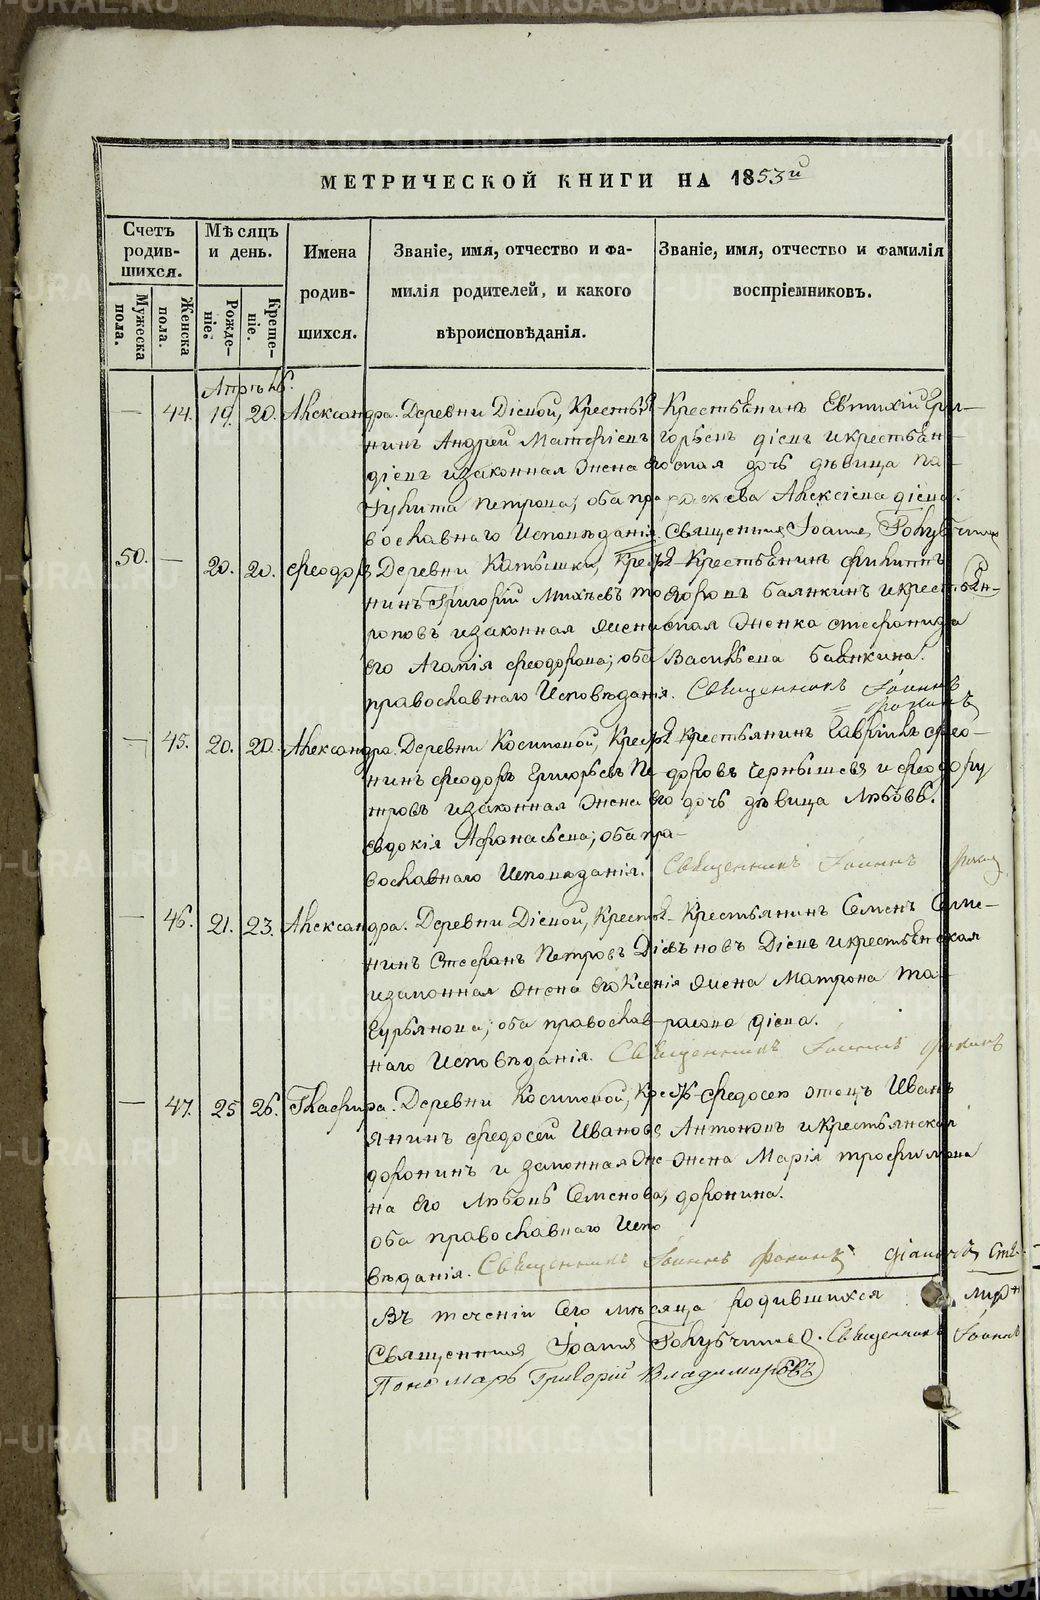 МЕТРИЧЕСКОЙ КНИГИ НА 1853й
Счетъ родив-шихся.
Мужеска пола.
Женска пола.
Мѣсяцъ и день.
Рожде-ніе.
Креще-ніе.
Имена родив-шихся.
Званіе, имя, отчество и фа-
милія родителей, и какого
вѣроисповѣданія.
Званіе, имя, отчество и фамилія
воспріемниковъ.
Апрѣль.
— 44. 19. 20. Александра.
Деревни Діевой, Крестья-
нинъ Андрей
Діевъ и законная жена его
Петрова; оба пра-
вославнаго Исповѣданія.
Крестьянинъ Евтихій Гри-
горьевъ Діевъ и крестьян-
ская дочь дѣвица Па-
раскева Алексіева Діева.
Священник Іоанн Голубчиков
50. — 20. 20. Феодоръ
Деревни Катышки, Кресть-
нинъ Григорій
и законная жена
его Агапія Феодорова; оба
православнаго Исповѣданія.
Крестьянинъ Филиппъ
Егоровъ Балакинъ и крестьян-
ская женка Стефанида
Васильева
Священникъ Іоаннъ
Фокинъ
— 45. 20. 20. Александра.
Деревни Косиковой, Кресть-
нинъ Феодоръ Григорьевъ Пе-
тровъ и законная жена его
Евдокія Афонасьева; оба пра-
вославнаго Исповѣданія.
Крестьянинъ Гавріилъ Фео-
доровъ Чернышевъ и Феодору
дочь дѣвица Любовь.
Священникъ Іоаннъ
— 46. 21. 23. Александра.
Деревни Діевой, Кресть-
нинъ Стефанъ Петровъ Діевъ
и законная жена его Ксенія
Гурьянова; оба православ-
наго Исповѣданія.
Крестьянинъ Семенъ Семе-
новъ Діевъ и крестьянская
жена Матрона
Діева.
Священникъ Іоаннъ Фокинъ
— 47. 25 26. Глафира.
Деревни Косиковой, Крест-
янинъ Федосей Ивановъ
Доронинъ и законная же-
на его Любовь Семенова,
оба православнаго Испо
вѣданія.
Федосею отецъ Иванъ
Антоновъ и крестьянская
жена Марія Трофимова
Доронина.
Священникъ Іоаннъ Фокинъ
Въ теченіи Сего мѣсяца родившихся
Священник Іоанн Голубчиков. Священникъ Іоаннъ
Пономарь Григорій Владимировъ